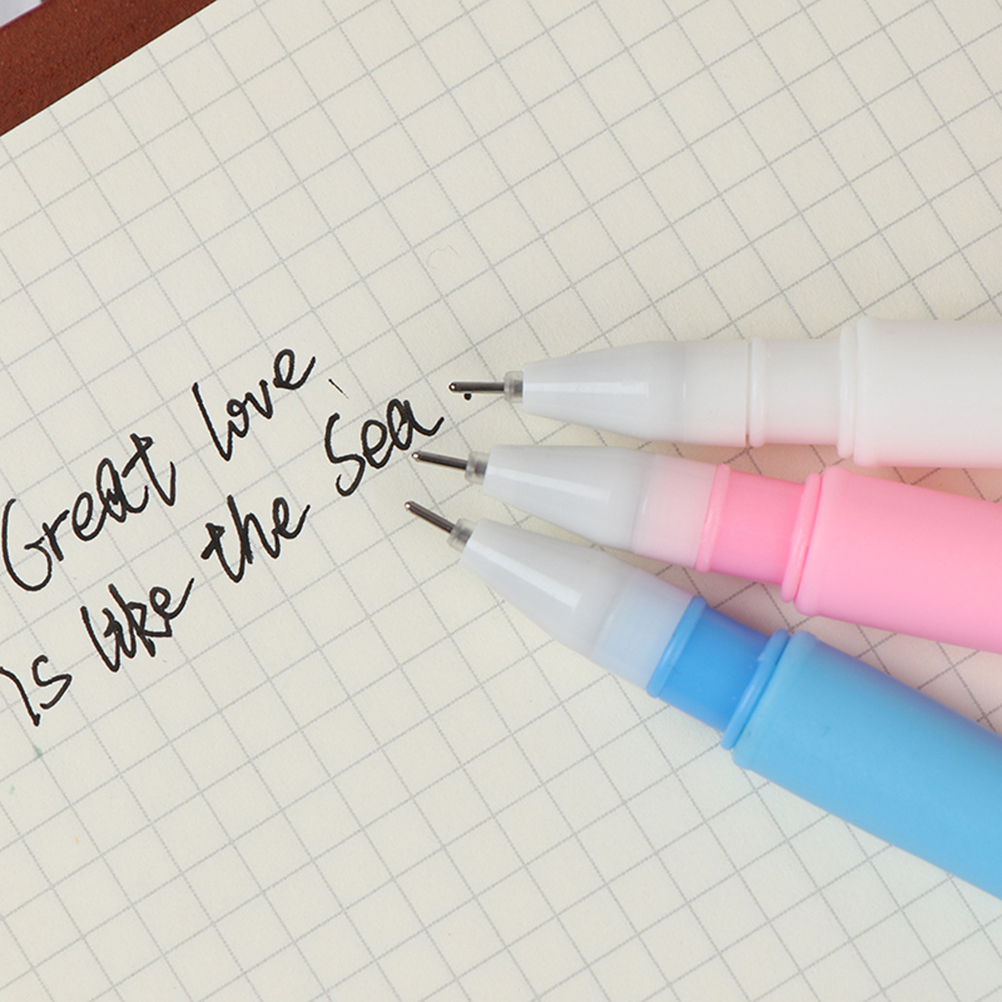 Great love
is like the Sea.